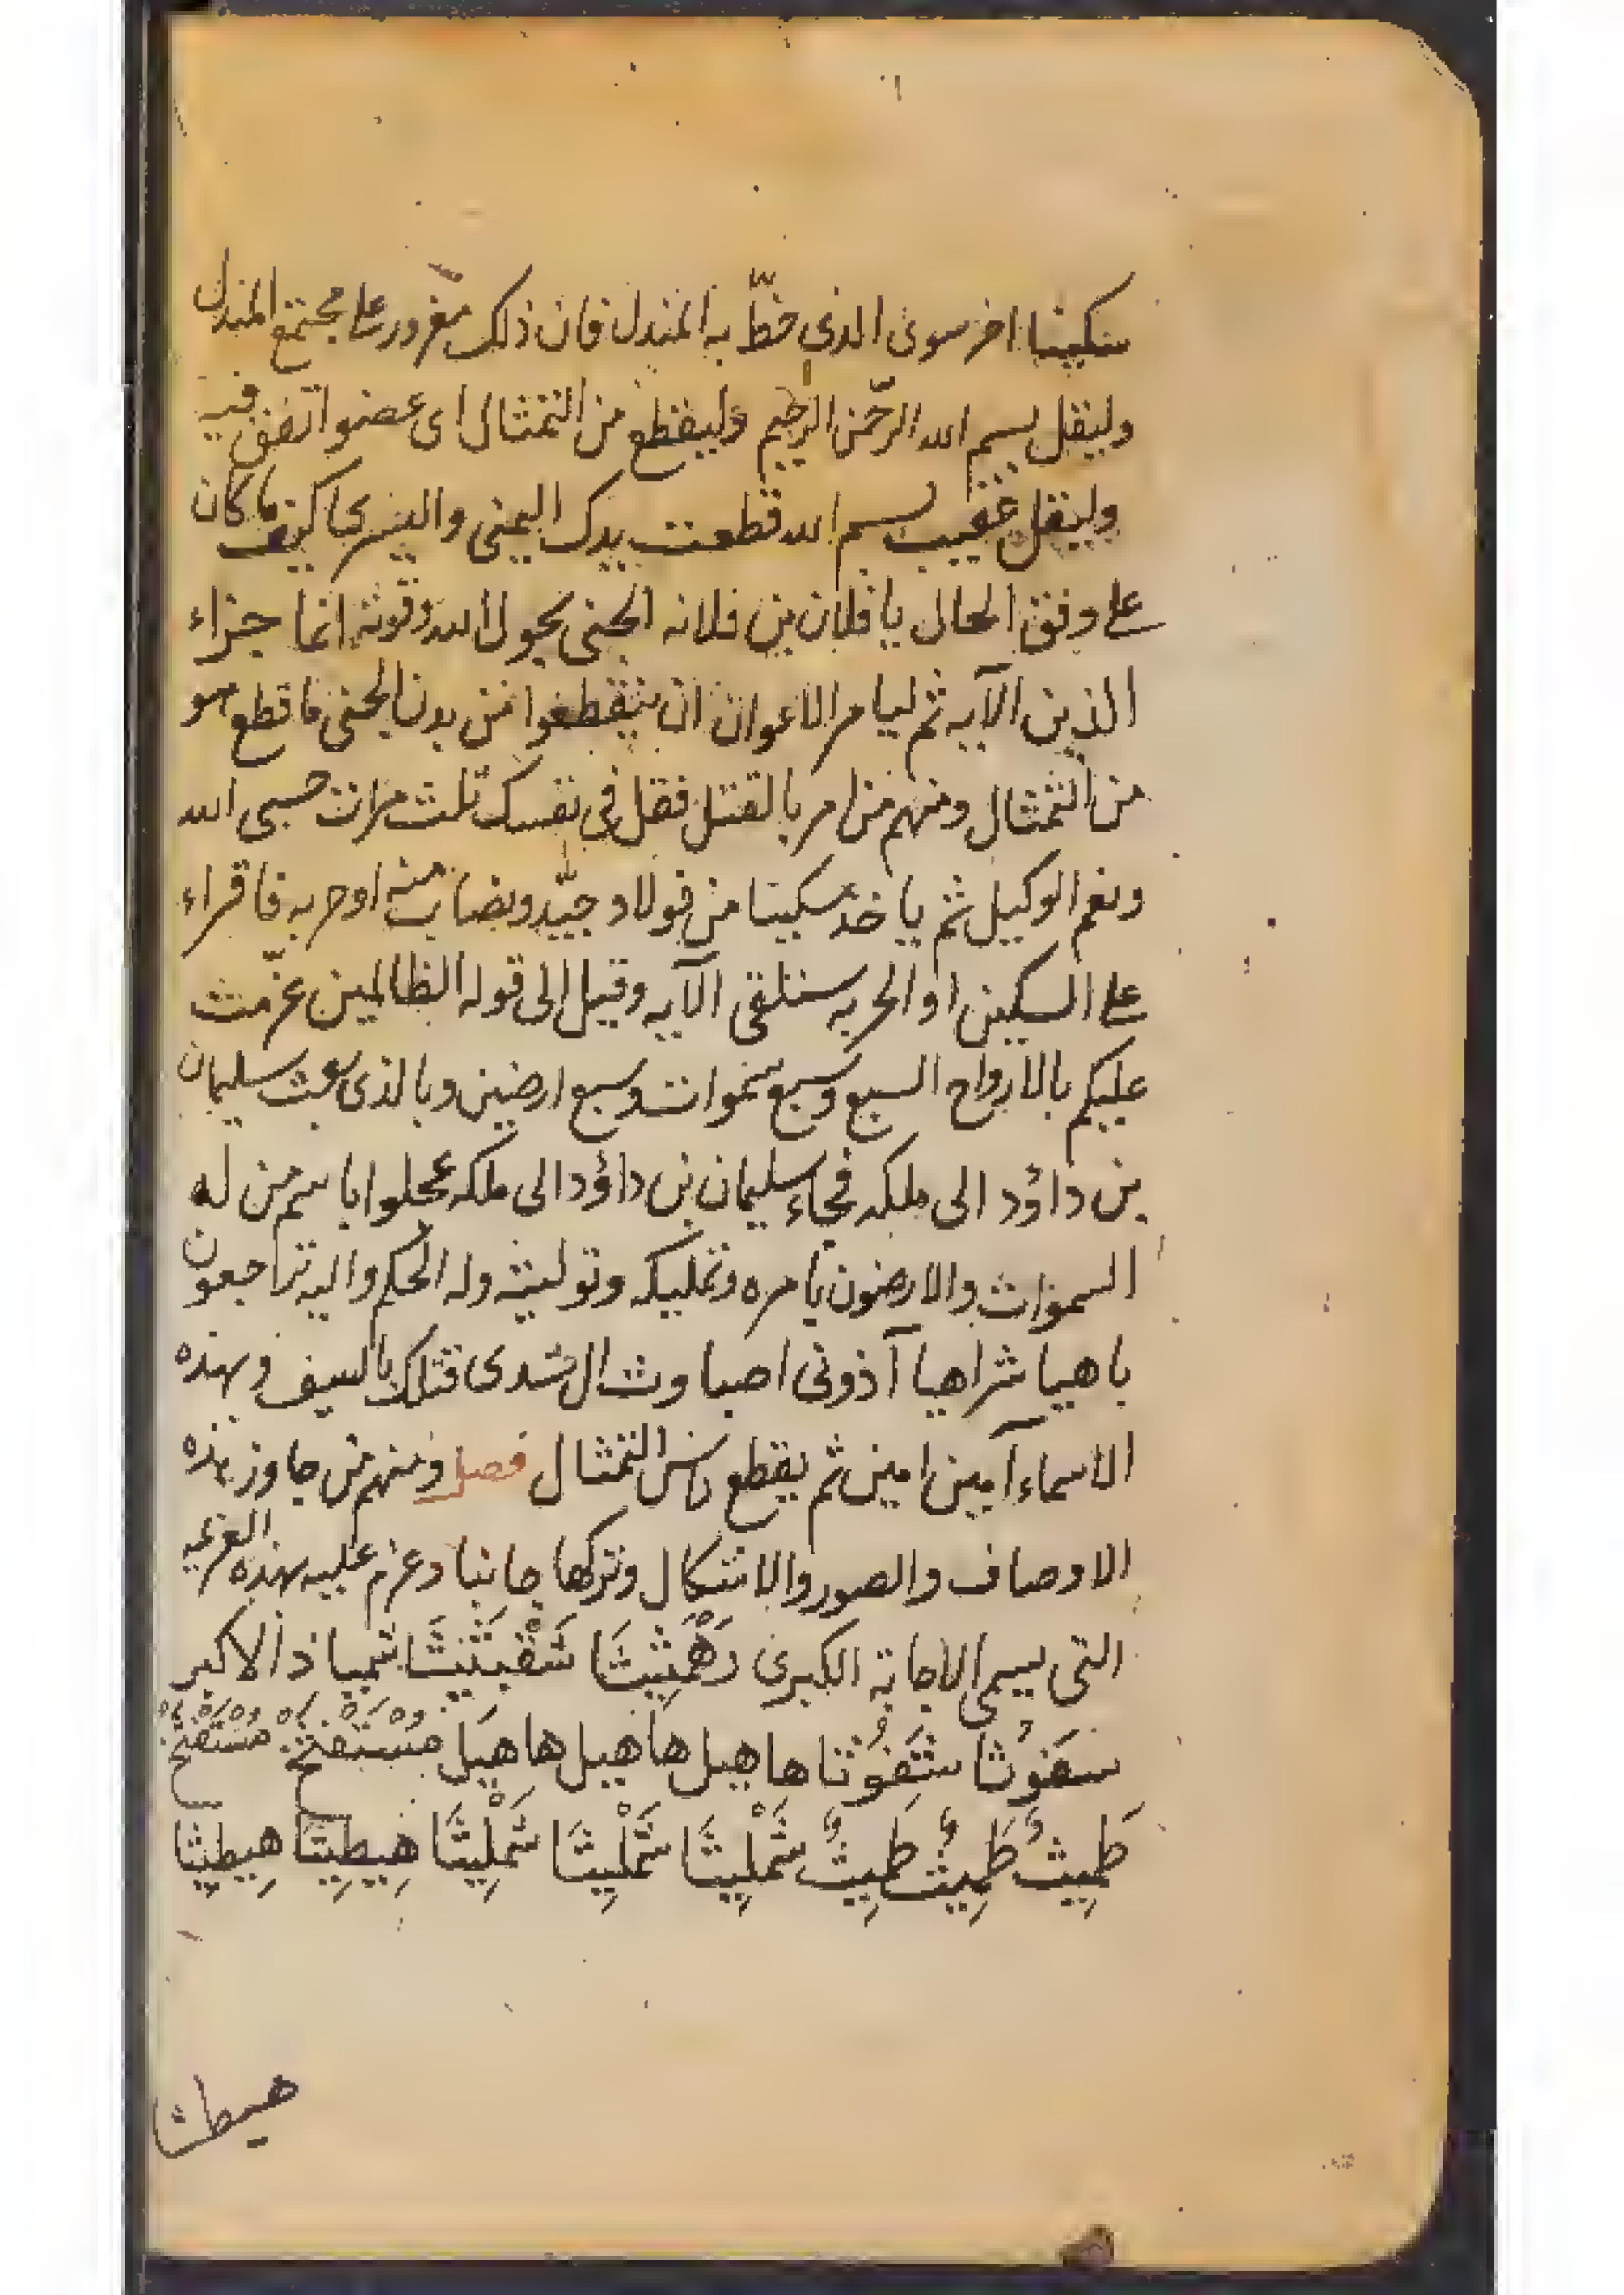 سكينا اخر سوى الذي خطّ به المندل فان ذلك مغرور على مجتمع المندل
وليقل بسم الله الرحمن الرحيم وليقطع من التمثال اى عضو اتفق فيه
وليقل عقيب بسم الله قطعت يدك اليمنى واليسرى كيف ما كان
على وفق الحال يا فلان بن فلانه الجنى بحول الله وقوته انما جزاء
الذين الآيه ثم ليامر الاعوان ان يقطعوا من بدن الجنى ما قطع هو
من التمثال ومنهم من امر بالقتل فقل في نفسك ثلث مرات حسبى الله
ونعم الوكيل ثم ياخذ سكينا من فولاد جيّد ونصاب منه او حربه فاقراء
على السكين او الحربه سنلقى الآيه وقيل الى قوله الظالمين عزّمت
عليكم بالارواح السبع وسبع سموات وسبع ارضين وبالذى بعث سليمان
بن داؤد الى ملكه فجاء سليمان بن داؤد الى ملكه عجلوا باسم من له
السموات والارضون بامره وتمليكه وتوليته وله الحكم واليه تراجعون
باهيا شراهيا آذونى اصباوث ال شدى قتلك بالسيف وبهذه
الاسماء آمين امين ثم يقطع راس التمثال فصل ومنهم من جاوز هذه
الاوصاف والصور والاشكال وتركها جانبا وعزم عليه بهذه العزيمه
التى يسمى الاجابة الكبرى
هاهيل هاهيل هاهيل
طَمِيثُ طَمِيثُ طَمِيثُ شَمْلِيثَا شَمْلِيثَا شَمْلِيثَا هِيطِيثَا هِيطِيثَا
هيطيثا